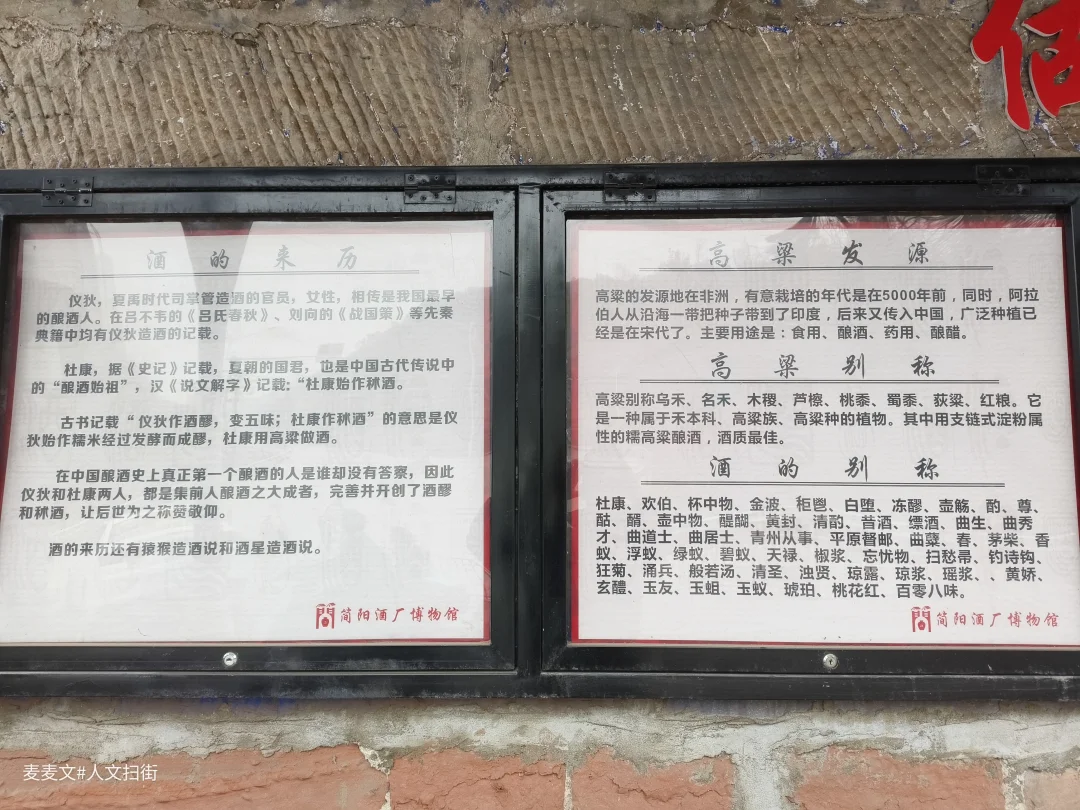 酒的来历
仪狄，夏禹时代司掌管造酒的官员，女性，相传是我国最早
的酿酒人。在吕不韦的《吕氏春秋》、刘向的《战国策》等先秦
典籍中均有仪狄造酒的记载。
杜康，据《史记》记载，夏朝的国君，也是中国古代传说中
的“酿酒始祖”，汉《说文解字》记载:“杜康始作秫酒。
古书记载“仪狄作酒醪，变五味；杜康作秫酒”的意思是仪
狄始作糯米经过发酵而成醪，杜康用高粱做酒。
在中国酿酒史上真正第一个酿酒的人是谁却没有答察，因此
仪狄和杜康两人，都是集前人酿酒之大成者，完善并开创了酒醪
和秫酒，让后世为之称赞敬仰。
酒的来历还有猿猴造酒说和酒星造酒说。
简阳酒厂博物馆
高粱发源
高粱的发源地在非洲，有意栽培的年代是在5000年前，同时，阿拉
伯人从沿海一带把种子带到了印度，后来又传入中国，广泛种植已
经是在宋代了。主要用途是：食用、酿酒、药用、酿醋。
高粱别称
高粱别称乌禾、名禾、木稷、芦檫、桃黍、蜀黍、荻粱、红粮。它
是一种属于禾本科、高粱族、高粱种的植物。其中用支链式淀粉属
性的糯高粱酿酒，酒质最佳。
酒的别称
杜康、欢伯、杯中物、金波、秬鬯、白堕、冻醪、壶觞、酌、尊、
酤、醑、壶中物、醍醐、黄封、清酌、昔酒、缥酒、曲生、曲秀
才、曲道士、曲居士、青州从事、平原督邮、曲蘖、春、茅柴、香
蚁、浮蚁、绿蚁、碧蚁、天禄、椒浆、忘忧物、扫愁帚、钓诗钩、
狂菊、涌兵、般若汤、清圣、浊贤、琼露、琼浆、瑶浆、、黄娇、
玄醴、玉友、玉蛆、玉蚁、琥珀、桃花红、百零八味。
简阳酒厂博物馆
麦麦文#人文扫街